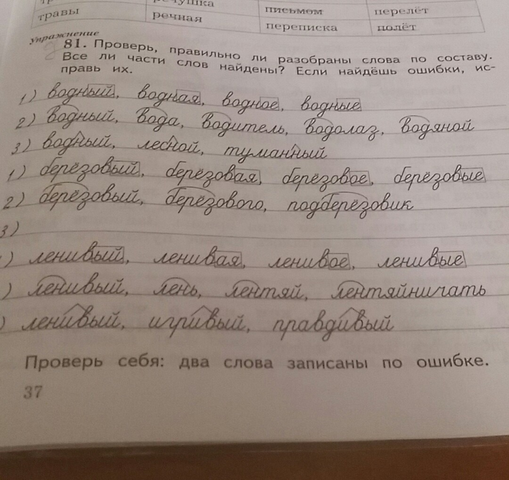 травы речная письмом перелёт
переписка полёт
Упражнение
81. Проверь, правильно ли разобраны слова по составу.
Все ли части слов найдены? Если найдёшь ошибки, ис-
правь их.
1) водный, водная, водное, водные
2) водный, вода, водитель, водолаз, водяной
3) водный, лесной, туманный
1) березовый, березовая, березовое, березовые
2) берёзовый, берёзового, подберёзовик
3)
) ленивый, ленивая, ленивое, ленивые
) ленивый, лень, лентяй, лентяйничать
) ленивый, игривый, правдивый
Проверь себя: два слова записаны по ошибке.
37